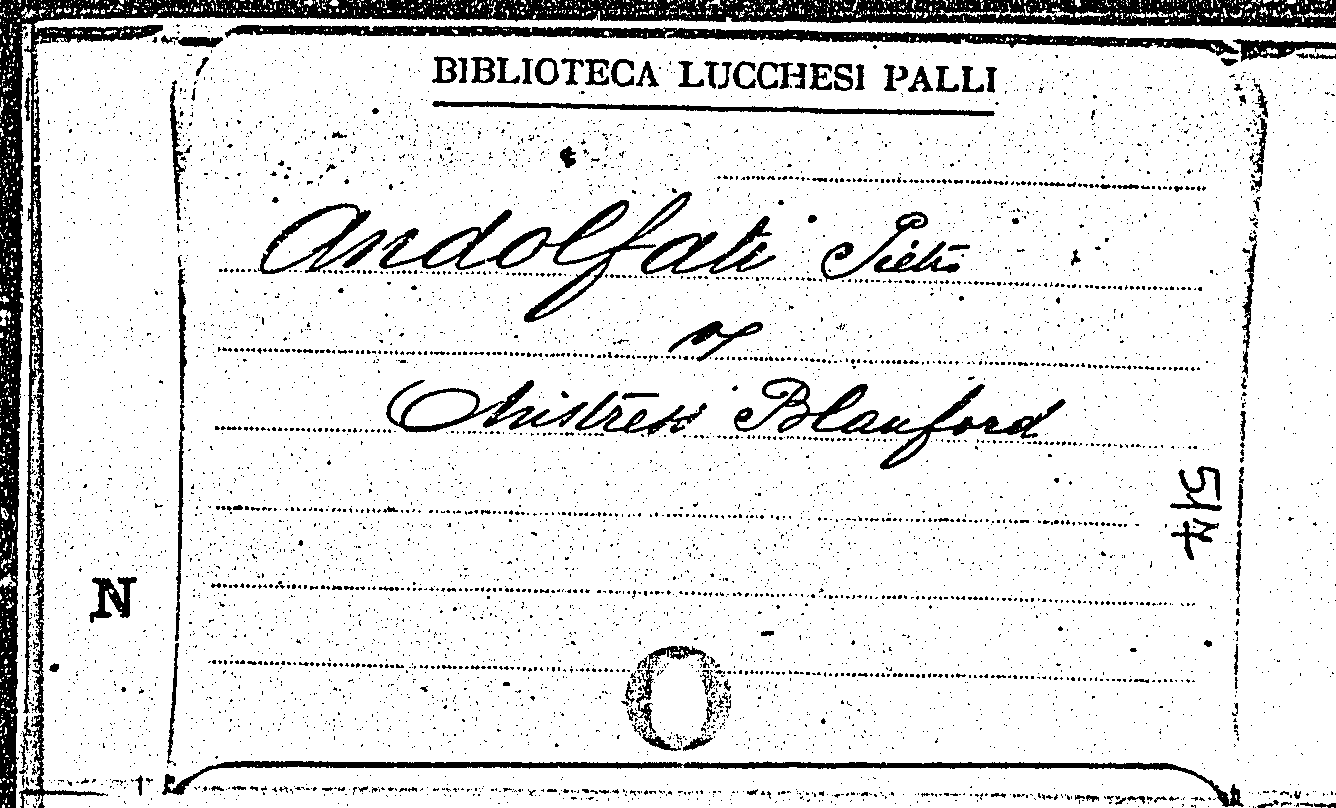 BIBLIOTECA LUCCHESI PALLI
Andolfati Pietro
Mistress Blanford
514
N